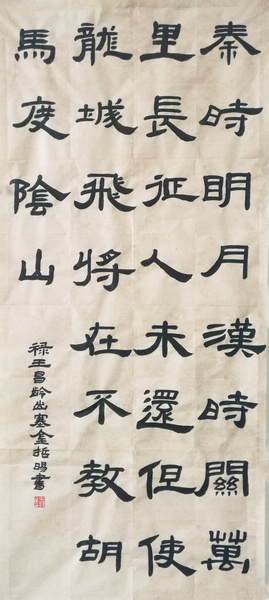 秦時明月漢時關萬
里長征人未還但使
龍城飛將在不教胡
馬度陰山
王昌齡出塞金哲明書